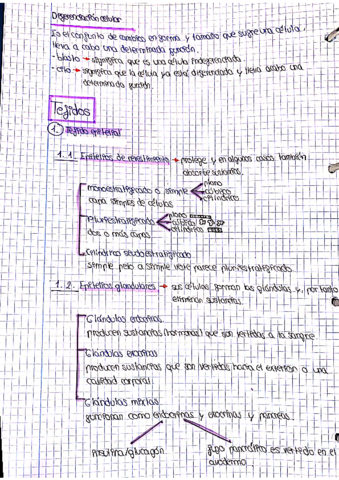 Diferenciación celular
Es el conjunto de cambios en forma y tamaño que sugre una célula.
lleva a cabo una determinada función.
- blasto → significa que es una célula indiferenciada
- cito → significa que la célula ya está diferenciada y lleva acabo una
determinada función.
Tejidos
1. Tejido epitelial
1.1. Epitelios de revestimiento → protege y en algunos casos también
absorbe sustancias.
monoestratificado o simple plano
cúbico
cilíndrico
capa simples de células
Pluriestratificado plano
cúbico
cilíndrico
dos o más capas
Cilíndrico seudoestratificado
simple pero a simple vista parece pluriestratificado
1.2. Epitelios glandulares → sus células forman las glándulas y, por tanto
eliminan sustancias.
Glándulas endocrinas
producen sustancias (hormonas) que son vertidas a la sangre
Glándulas exocrinas
producen sustancias que son vertidas hacia el exterior o una
cavidad corporal.
Glándulas mixtas
funcionan como endocrinas y exocrinas y páncreas.
Insulina/glucagón
Jugo pancreático es vertido en el
duodeno.